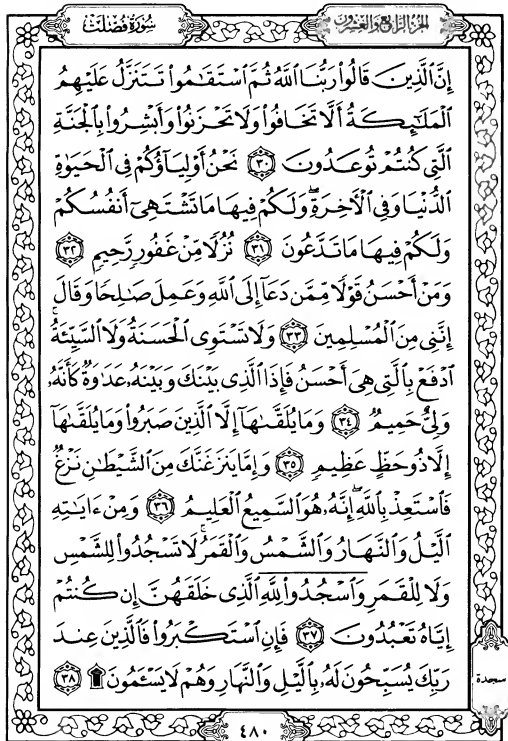 سُورَةُ فُصِّلَتْ
الجُزْءُ الرَّابِعُ وَالعِشْرُونَ
إِنَّ ٱلَّذِينَ قَالُوا۟ رَبُّنَا ٱللَّهُ ثُمَّ ٱسْتَقَـٰمُوا۟ تَتَنَزَّلُ عَلَيْهِمُ
ٱلْمَلَـٰٓئِكَةُ أَلَّا تَخَافُوا۟ وَلَا تَحْزَنُوا۟ وَأَبْشِرُوا۟ بِٱلْجَنَّةِ
ٱلَّتِى كُنتُمْ تُوعَدُونَ ٣٠ نَحْنُ أَوْلِيَآؤُكُمْ فِى ٱلْحَيَوٰةِ
ٱلدُّنْيَا وَفِى ٱلْـَٔاخِرَةِ ۖ وَلَكُمْ فِيهَا مَا تَشْتَهِىٓ أَنفُسُكُمْ
وَلَكُمْ فِيهَا مَا تَدَّعُونَ ٣١ نُزُلًا مِّنْ غَفُورٍ رَّحِيمٍ ٣٢
وَمَنْ أَحْسَنُ قَوْلًا مِّمَّن دَعَآ إِلَى ٱللَّهِ وَعَمِلَ صَـٰلِحًا وَقَالَ
إِنَّنِى مِنَ ٱلْمُسْلِمِينَ ٣٣ وَلَا تَسْتَوِى ٱلْحَسَنَةُ وَلَا ٱلسَّيِّئَةُ ۚ
ٱدْفَعْ بِٱلَّتِى هِىَ أَحْسَنُ فَإِذَا ٱلَّذِى بَيْنَكَ وَبَيْنَهُۥ عَدَٰوَةٌ كَأَنَّهُۥ
وَلِىٌّ حَمِيمٌ ٣٤ وَمَا يُلَقَّىٰهَآ إِلَّا ٱلَّذِينَ صَبَرُوا۟ وَمَا يُلَقَّىٰهَآ
إِلَّا ذُو حَظٍّ عَظِيمٍ ٣٥ وَإِمَّا يَنزَغَنَّكَ مِنَ ٱلشَّيْطَـٰنِ نَزْغٌ
فَٱسْتَعِذْ بِٱللَّهِ ۖ إِنَّهُۥ هُوَ ٱلسَّمِيعُ ٱلْعَلِيمُ ٣٦ وَمِنْ ءَايَـٰتِهِ
ٱلَّيْلُ وَٱلنَّهَارُ وَٱلشَّمْسُ وَٱلْقَمَرُ ۚ لَا تَسْجُدُوا۟ لِلشَّمْسِ
وَلَا لِلْقَمَرِ وَٱسْجُدُوا۟ لِلَّهِ ٱلَّذِى خَلَقَهُنَّ إِن كُنتُمْ
إِيَّاهُ تَعْبُدُونَ ٣٧ فَإِنِ ٱسْتَكْبَرُوا۟ فَٱلَّذِينَ عِندَ
رَبِّكَ يُسَبِّحُونَ لَهُۥ بِٱلَّيْلِ وَٱلنَّهَارِ وَهُمْ لَا يَسْـَٔمُونَ ۩ ٣٨
سجدة
٤٨٠